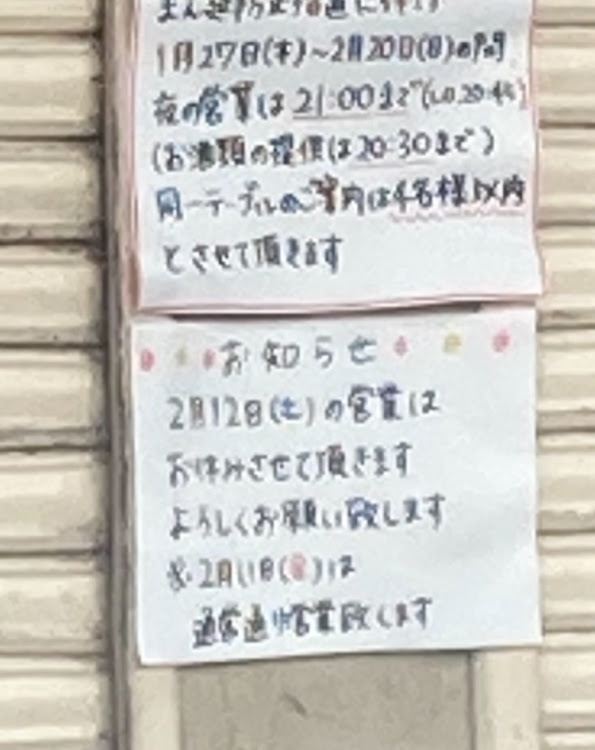 まん延防止
1月27日(木)~2月20日(日)の間
夜の営業は21:00まで(L.O.20:45)
(お酒類の提供は20:30まで)
同一テーブルのご案内は4名様以内
とさせて頂きます
お知らせ
2月12日(土)の営業は
お休みさせて頂きます
よろしくお願い致します
※2月11日(金)は
通常通り営業致します